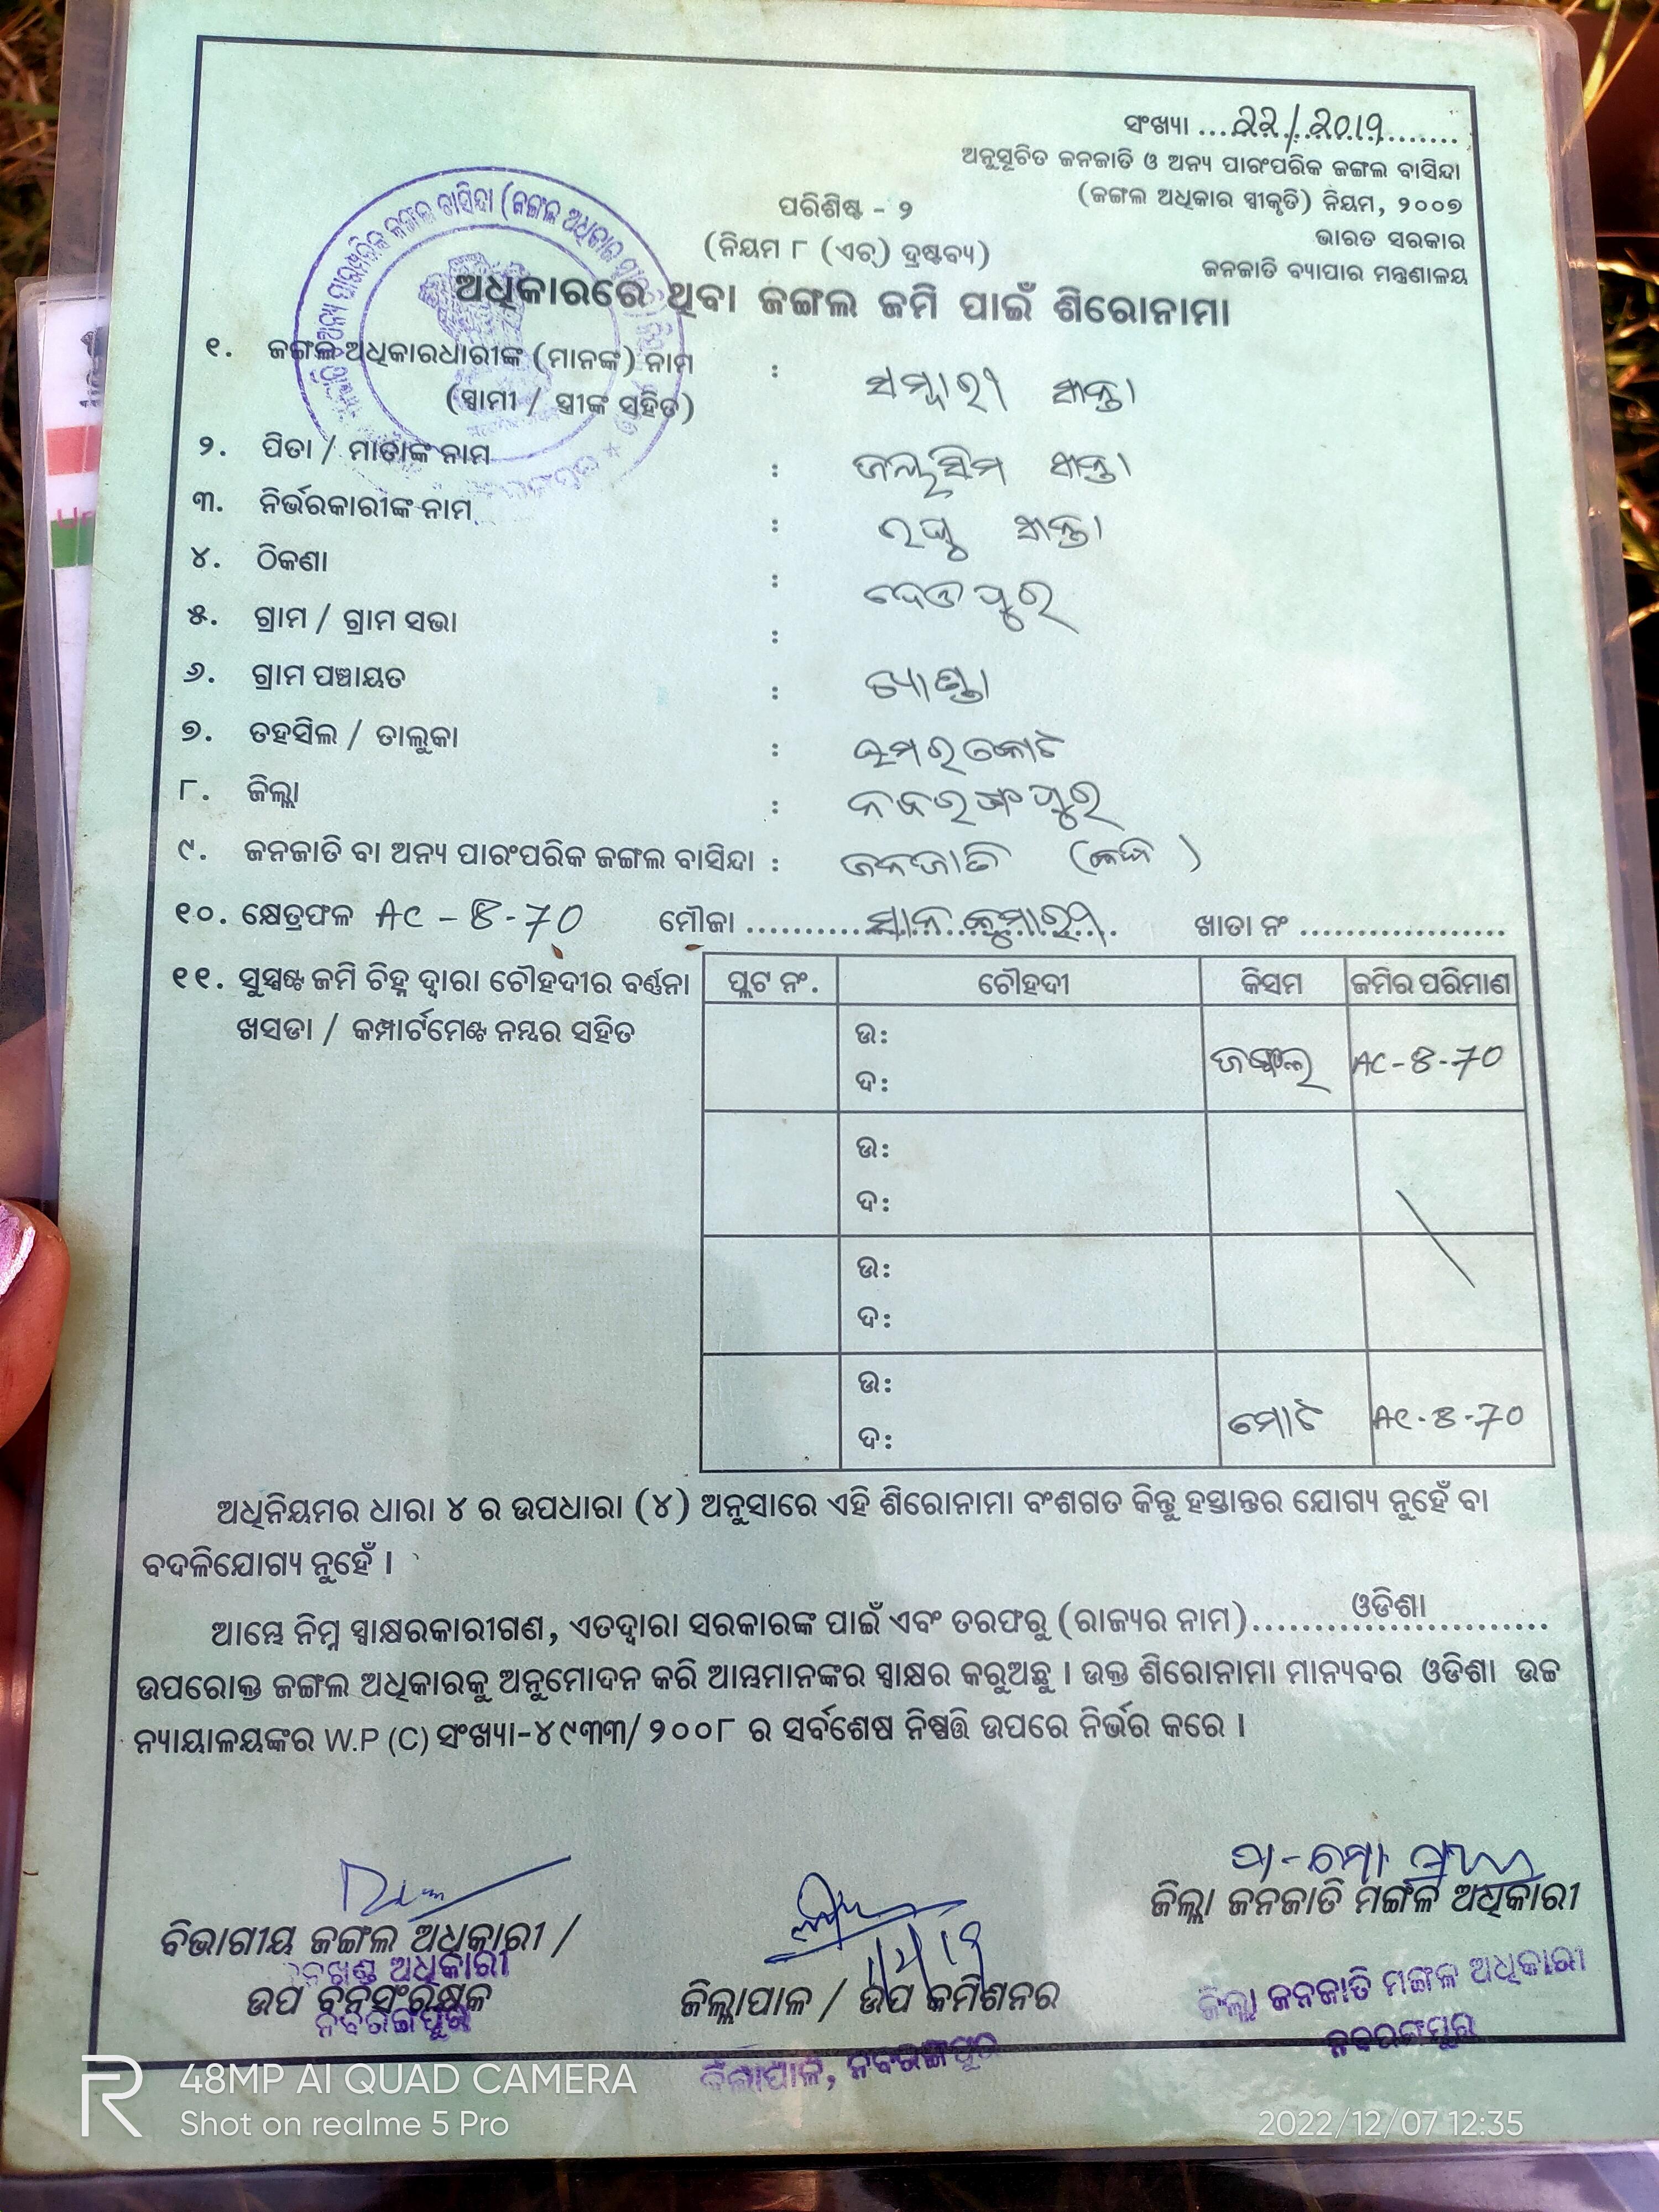 ସଂଖ୍ୟା ... ୨୨/୨୦୧୨
ଅନୁସୂଚିତ ଜନଜାତି ଓ ଅନ୍ୟ ପାରଂପରିକ ଜଙ୍ଗଲ ବାସିନ୍ଦା
(ଜଙ୍ଗଲ ଅଧିକାର ସ୍ୱୀକୃତି) ନିୟମ, ୨୦୦୭
ଭାରତ ସରକାର
ଜନଜାତି ବ୍ୟାପାର ମନ୍ତ୍ରଣାଳୟ
ପରିଶିଷ୍ଟ - ୨
(ନିୟମ ୮ (ଏଚ୍) ଦ୍ରଷ୍ଟବ୍ୟ)
ଅଧିକାରରେ ଥିବା ଜଙ୍ଗଲ ଜମି ପାଇଁ ଶିରୋନାମା
୧. ଜଙ୍ଗଲ ଅଧିକାରଧାରୀଙ୍କ (ମାନଙ୍କ) ନାମ :
(ସ୍ୱାମୀ / ସ୍ତ୍ରୀଙ୍କ ସହିତ)
୨. ପିତା / ମାତାଙ୍କ ନାମ :
୩. ନିର୍ଭରକାରୀଙ୍କ ନାମ :
୪. ଠିକଣା : ଦେଓପୁର
୫. ଗ୍ରାମ / ଗ୍ରାମ ସଭା :
୬. ଗ୍ରାମ ପଞ୍ଚାୟତ :
୭. ତହସିଲ / ତାଲୁକା : ଉମରକୋଟ
୮. ଜିଲ୍ଲା : ନବରଙ୍ଗପୁର
୯. ଜନଜାତି ବା ଅନ୍ୟ ପାରଂପରିକ ଜଙ୍ଗଲ ବାସିନ୍ଦା : ଜନଜାତି
୧୦. କ୍ଷେତ୍ରଫଳ AC - 8-70 ମୌଜା ............ ଖାତା ନଂ ..................
୧୧. ସୁସ୍ପଷ୍ଟ ଜମି ଚିହ୍ନ ଦ୍ୱାରା ଚୌହଦୀର ବର୍ଣ୍ଣନା
ଖସଡା / କମ୍ପାର୍ଟମେଣ୍ଟ ନମ୍ବର ସହିତ
ପ୍ଲଟ ନଂ. ଚୌହଦୀ କିସମ ଜମିର ପରିମାଣ
ଉ:
ଦ: ଜଙ୍ଗଲ AC-8-70
ଉ:
ଦ:
ଉ:
ଦ:
ଉ:
ଦ: ମୋଟ AC-8-70
ଅଧିନିୟମର ଧାରା ୪ ର ଉପଧାରା (୪) ଅନୁସାରେ ଏହି ଶିରୋନାମା ବଂଶଗତ କିନ୍ତୁ ହସ୍ତାନ୍ତର ଯୋଗ୍ୟ ନୁହେଁ ବା
ବଦଳିଯୋଗ୍ୟ ନୁହେଁ ।
ଆମ୍ଭେ ନିମ୍ନ ସ୍ୱାକ୍ଷରକାରୀଗଣ, ଏତଦ୍ୱାରା ସରକାରଙ୍କ ପାଇଁ ଏବଂ ତରଫରୁ (ରାଜ୍ୟର ନାମ) ଓଡିଶା
ଉପରୋକ୍ତ ଜଙ୍ଗଲ ଅଧିକାରକୁ ଅନୁମୋଦନ କରି ଆମ୍ଭମାନଙ୍କର ସ୍ୱାକ୍ଷର କରୁଅଛୁ । ଉକ୍ତ ଶିରୋନାମା ମାନ୍ୟବର ଓଡିଶା ଉଚ୍ଚ
ନ୍ୟାୟାଳୟଙ୍କର W.P (C) ସଂଖ୍ୟା-୪୯୩୩/୨୦୦୮ ର ସର୍ବଶେଷ ନିଷ୍ପତ୍ତି ଉପରେ ନିର୍ଭର କରେ ।
ବିଭାଗୀୟ ଜଙ୍ଗଲ ଅଧିକାରୀ /
ବନଖଣ୍ଡ ଅଧିକାରୀ
ଉପ ବନସଂରକ୍ଷକ
ନବରଙ୍ଗପୁର
ଜିଲ୍ଲାପାଳ / ଉପ କମିଶନର
ଜିଲ୍ଲାପାଳ, ନବରଙ୍ଗପୁର
ଜିଲ୍ଲା ଜନଜାତି ମଙ୍ଗଳ ଅଧିକାରୀ
ଜିଲ୍ଲା ଜନଜାତି ମଙ୍ଗଳ ଅଧିକାରୀ
ନବରଙ୍ଗପୁର
48MP AI QUAD CAMERA
Shot on realme 5 Pro
2022/12/07 12:35